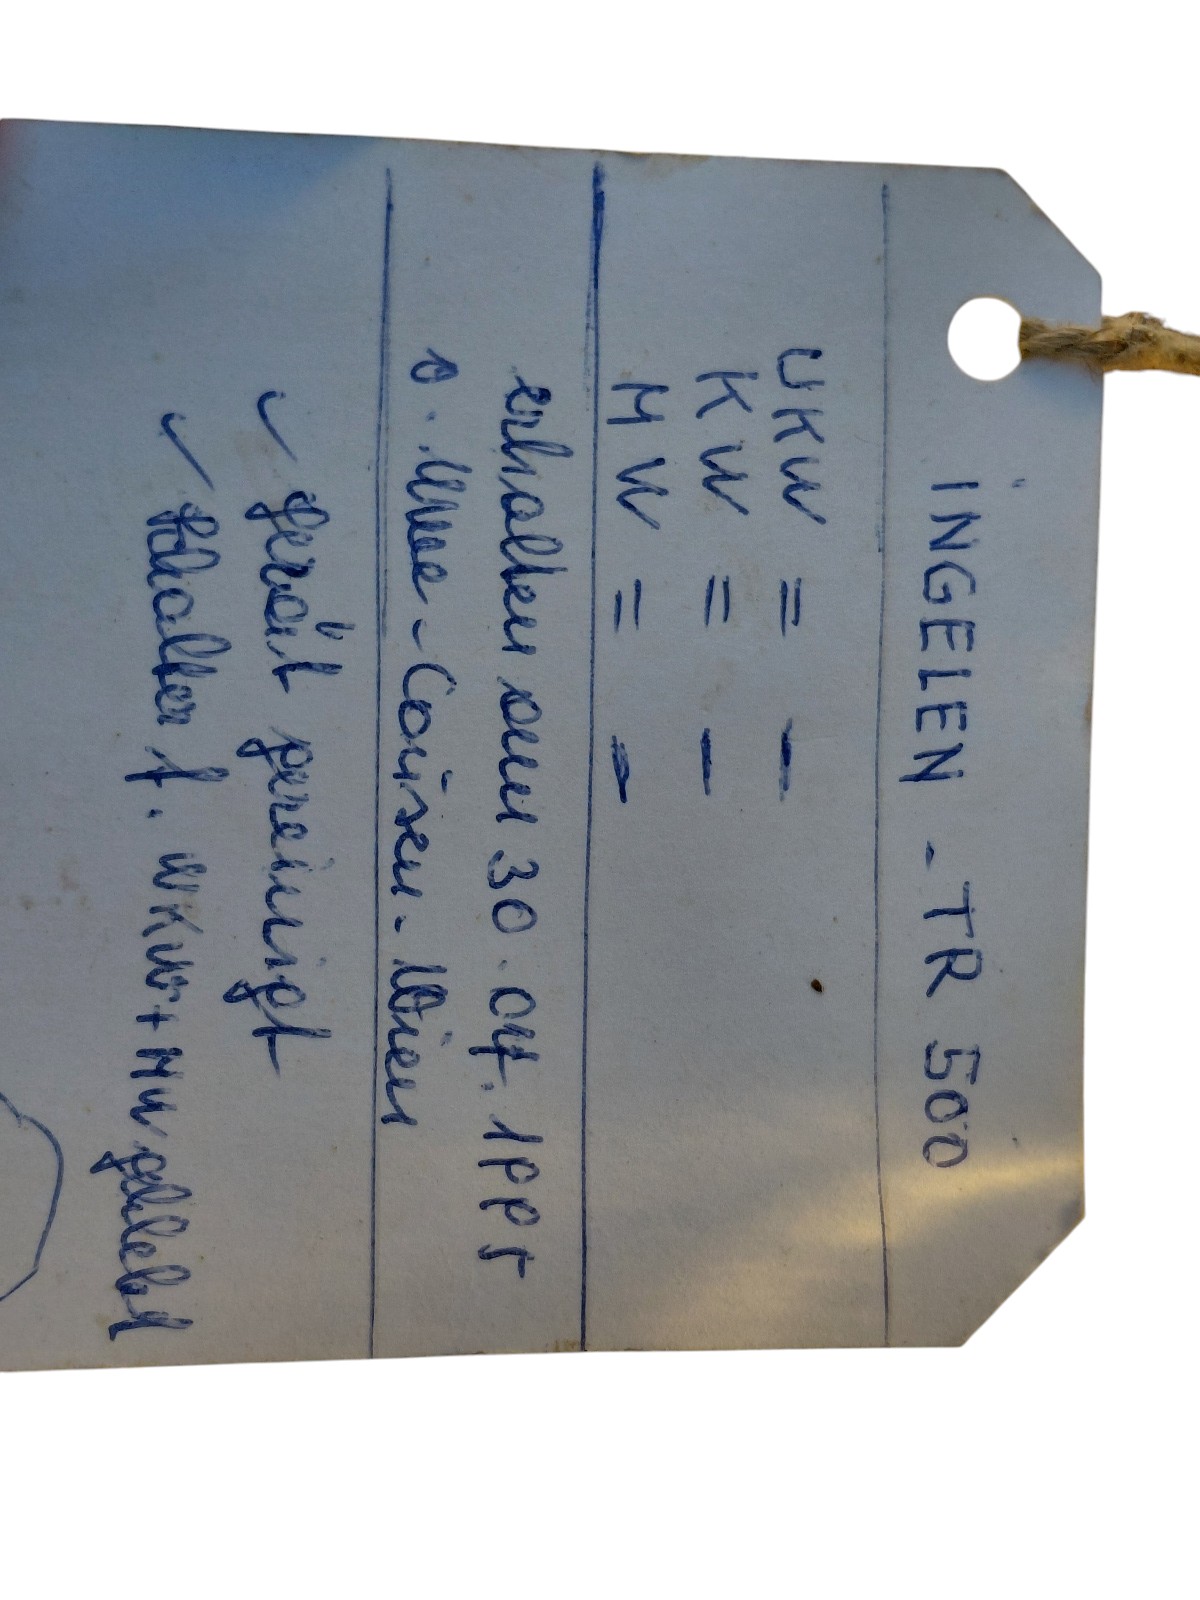 INGELEN - TR 500
UKW = -
KW = -
MW = -
erhalten am 30.04.1995
v. - Wien
✓ Gerät gereinigt
✓ Schalter f. UKW + MW geklebt